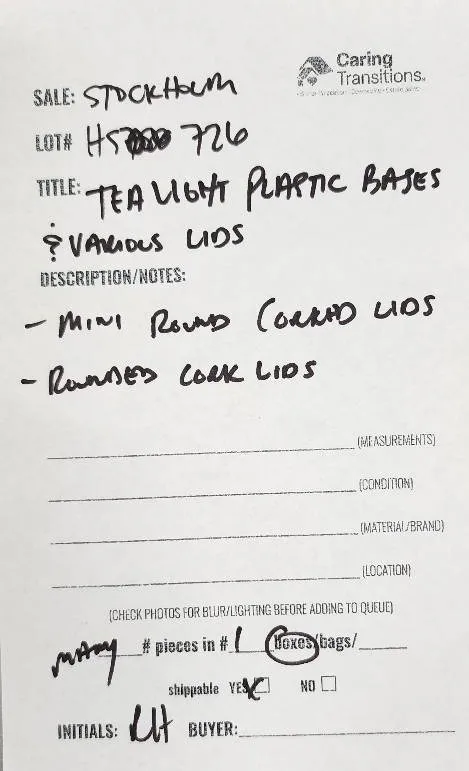 Caring
Transitions®
SALE: STOCKHOLM
LOT# HS 726
TITLE: TEA LIGHT PLASTIC BASES
& VARIOUS LIDS
DESCRIPTION/NOTES:
- MINI ROUND CORKED LIDS
- ROUNDED CORK LIDS
(MEASUREMENTS)
(CONDITION)
(MATERIAL/BRAND)
(LOCATION)
(CHECK PHOTOS FOR BLUR/LIGHTING BEFORE ADDING TO QUEUE)
MANY # pieces in # 1 boxes/bags/
shippable YES X NO
INITIALS: BUYER: